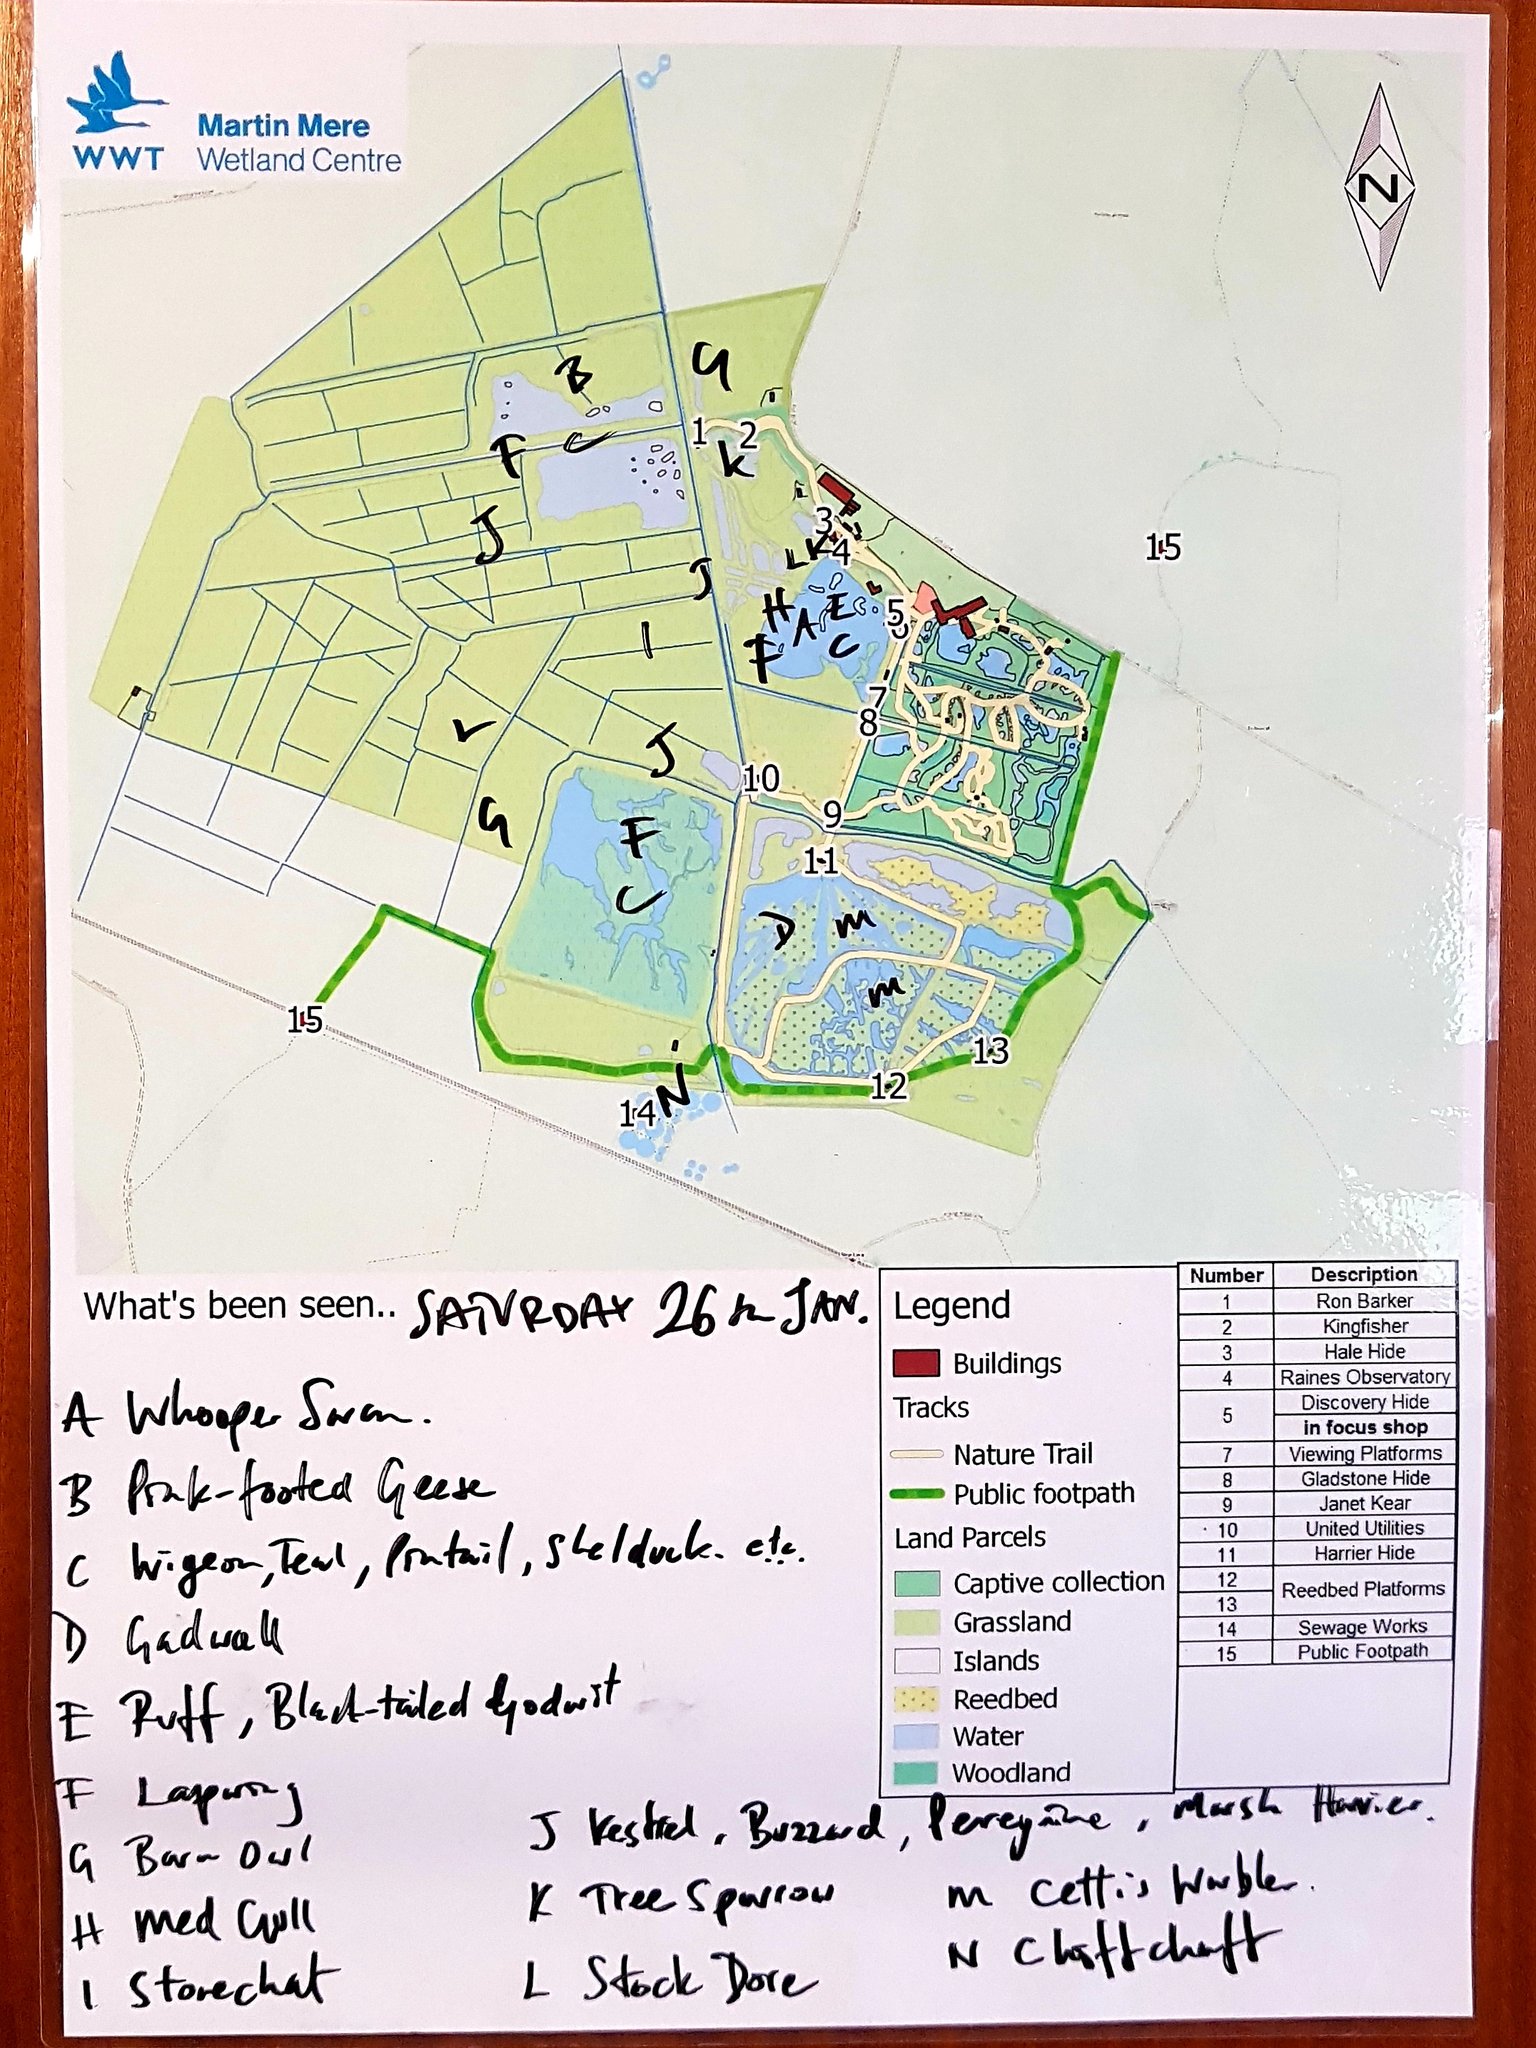 WWT
Martin Mere
Wetland Centre
N
B
G
1
2
F
C
K
3
J
L
K
4
15
J
H
E
5
A
I
F
C
7
8
L
J
10
G
9
F
11
C
D
m
m
15
13
N
14
12
What's been seen.. SATURDAY 26th JAN.
A Whooper Swan.
B Pink-footed Geese
C Wigeon, Teal, Pintail, Shelduck. etc.
D Gadwall
E Ruff, Black-tailed Godwit
F Lapwing
G Barn Owl
H Med Gull
I Stonechat
J Kestrel, Buzzard, Peregrine, Marsh Harrier.
K Tree Sparrow
L Stock Dove
M Cetti's Warbler.
N Chiffchaff
Legend
Buildings
Tracks
Nature Trail
Public footpath
Land Parcels
Captive collection
Grassland
Islands
Reedbed
Water
Woodland
Number Description
1 Ron Barker
2 Kingfisher
3 Hale Hide
4 Raines Observatory
5 Discovery Hide
in focus shop
7 Viewing Platforms
8 Gladstone Hide
9 Janet Kear
10 United Utilities
11 Harrier Hide
12 Reedbed Platforms
13
14 Sewage Works
15 Public Footpath